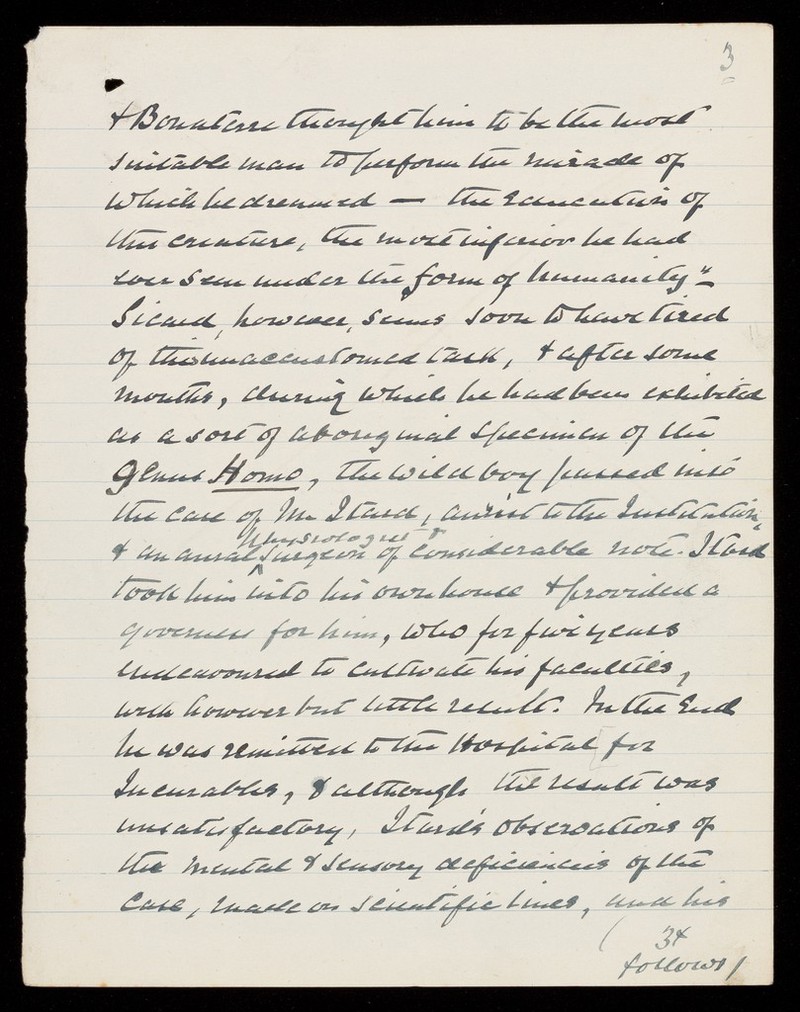 3
& Bonaterre thought him to be the most
suitable man to perform the miracle of
which he dreamed — the education of
this creature, the most inferior he had
ever seen under the "form of humanity" –
Sicard, however, seems soon to have tired
of this unaccustomed task, & after some
months, during which he had been exhibited
as a sort of aboriginal specimen of the
genus Homo, the wild boy passed into
the care of M. Itard, aurist to the Institution,
physiologist &
& an aural surgeon of considerable note. Itard
took him into his own house & provided a
governess for him, who for five years
endeavoured to cultivate his faculties,
with however but little result. In the end
he was remitted to the Hospital for
Incurables, & although the result was
unsatisfactory, Itard's observations of
the mental & sensory deficiencies of the
case, made on scientific lines, and his
( 3x
follows)